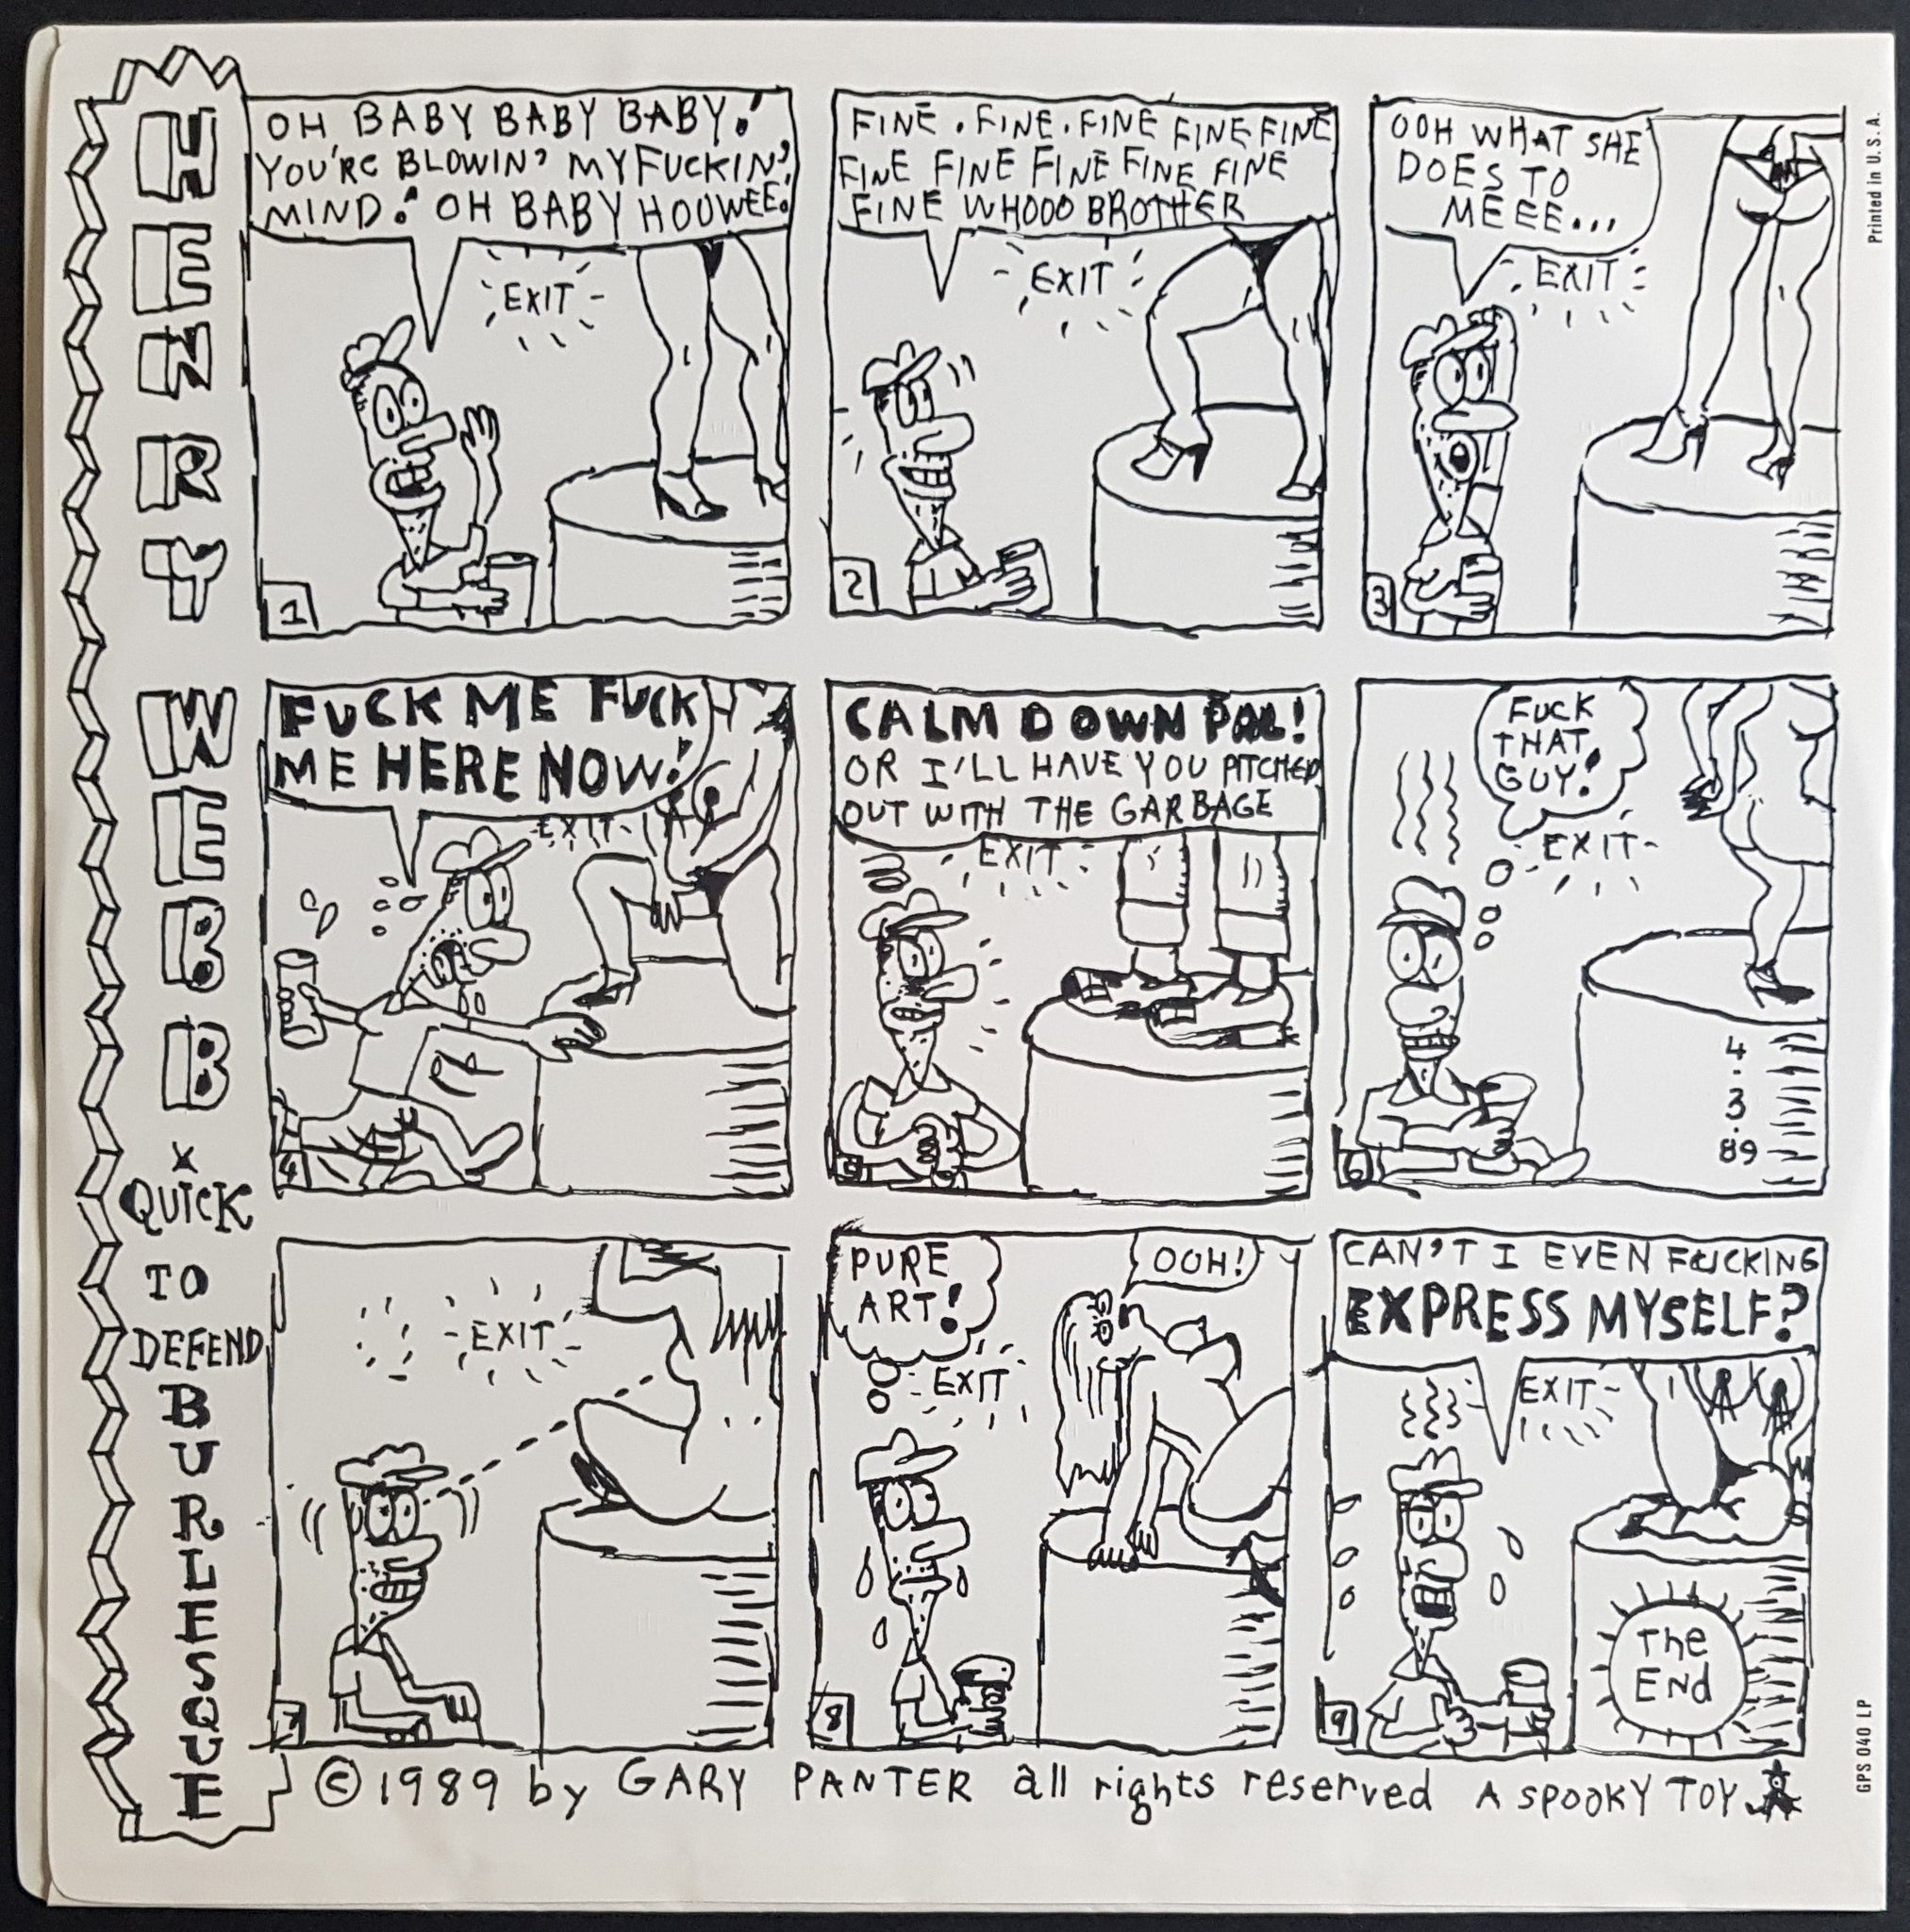 HENRY
WEBB
x
QUICK
TO
DEFEND
BURLESQUE
OH BABY BABY BABY!
YOU'RE BLOWIN' MY FUCKIN'
MIND! OH BABY HOUWEE!
EXIT
1
FINE. FINE. FINE FINE FINE
FINE FINE FINE FINE FINE
FINE WHOOO BROTHER
EXIT
2
OOH WHAT SHE
DOES TO
MEEE...
EXIT
3
FUCK ME FUCK
ME HERE NOW!
EXIT
4
CALM DOWN PAL!
OR I'LL HAVE YOU PITCHED
OUT WITH THE GARBAGE
EXIT
5
FUCK
THAT
GUY!
EXIT
4
.
3
.
89
6
EXIT
7
PURE
ART!
OOH!
EXIT
8
CAN'T I EVEN FUCKING
EXPRESS MYSELF?
EXIT
The
End
9
© 1989 by GARY PANTER all rights reserved A SPOOKY TOY
Printed in U.S.A.
GPS 040 LP